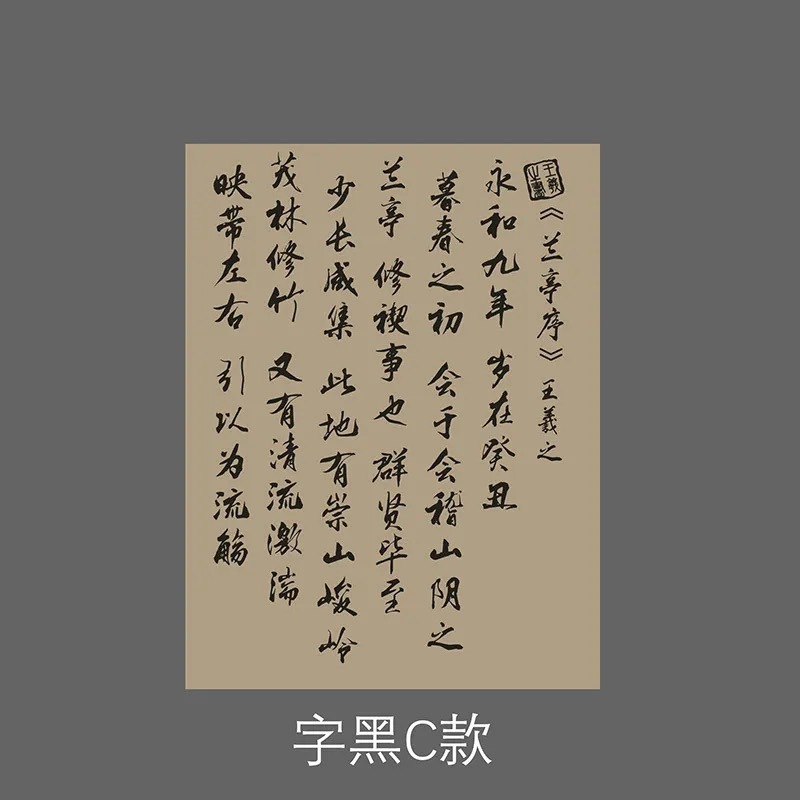 《兰亭序》王羲之
永和九年 岁在癸丑
暮春之初 会于会稽山阴之
兰亭 修禊事也 群贤毕至
少长咸集 此地有崇山峻岭
茂林修竹 又有清流激湍
映带左右 引以为流觞
王羲之书
字黑C款